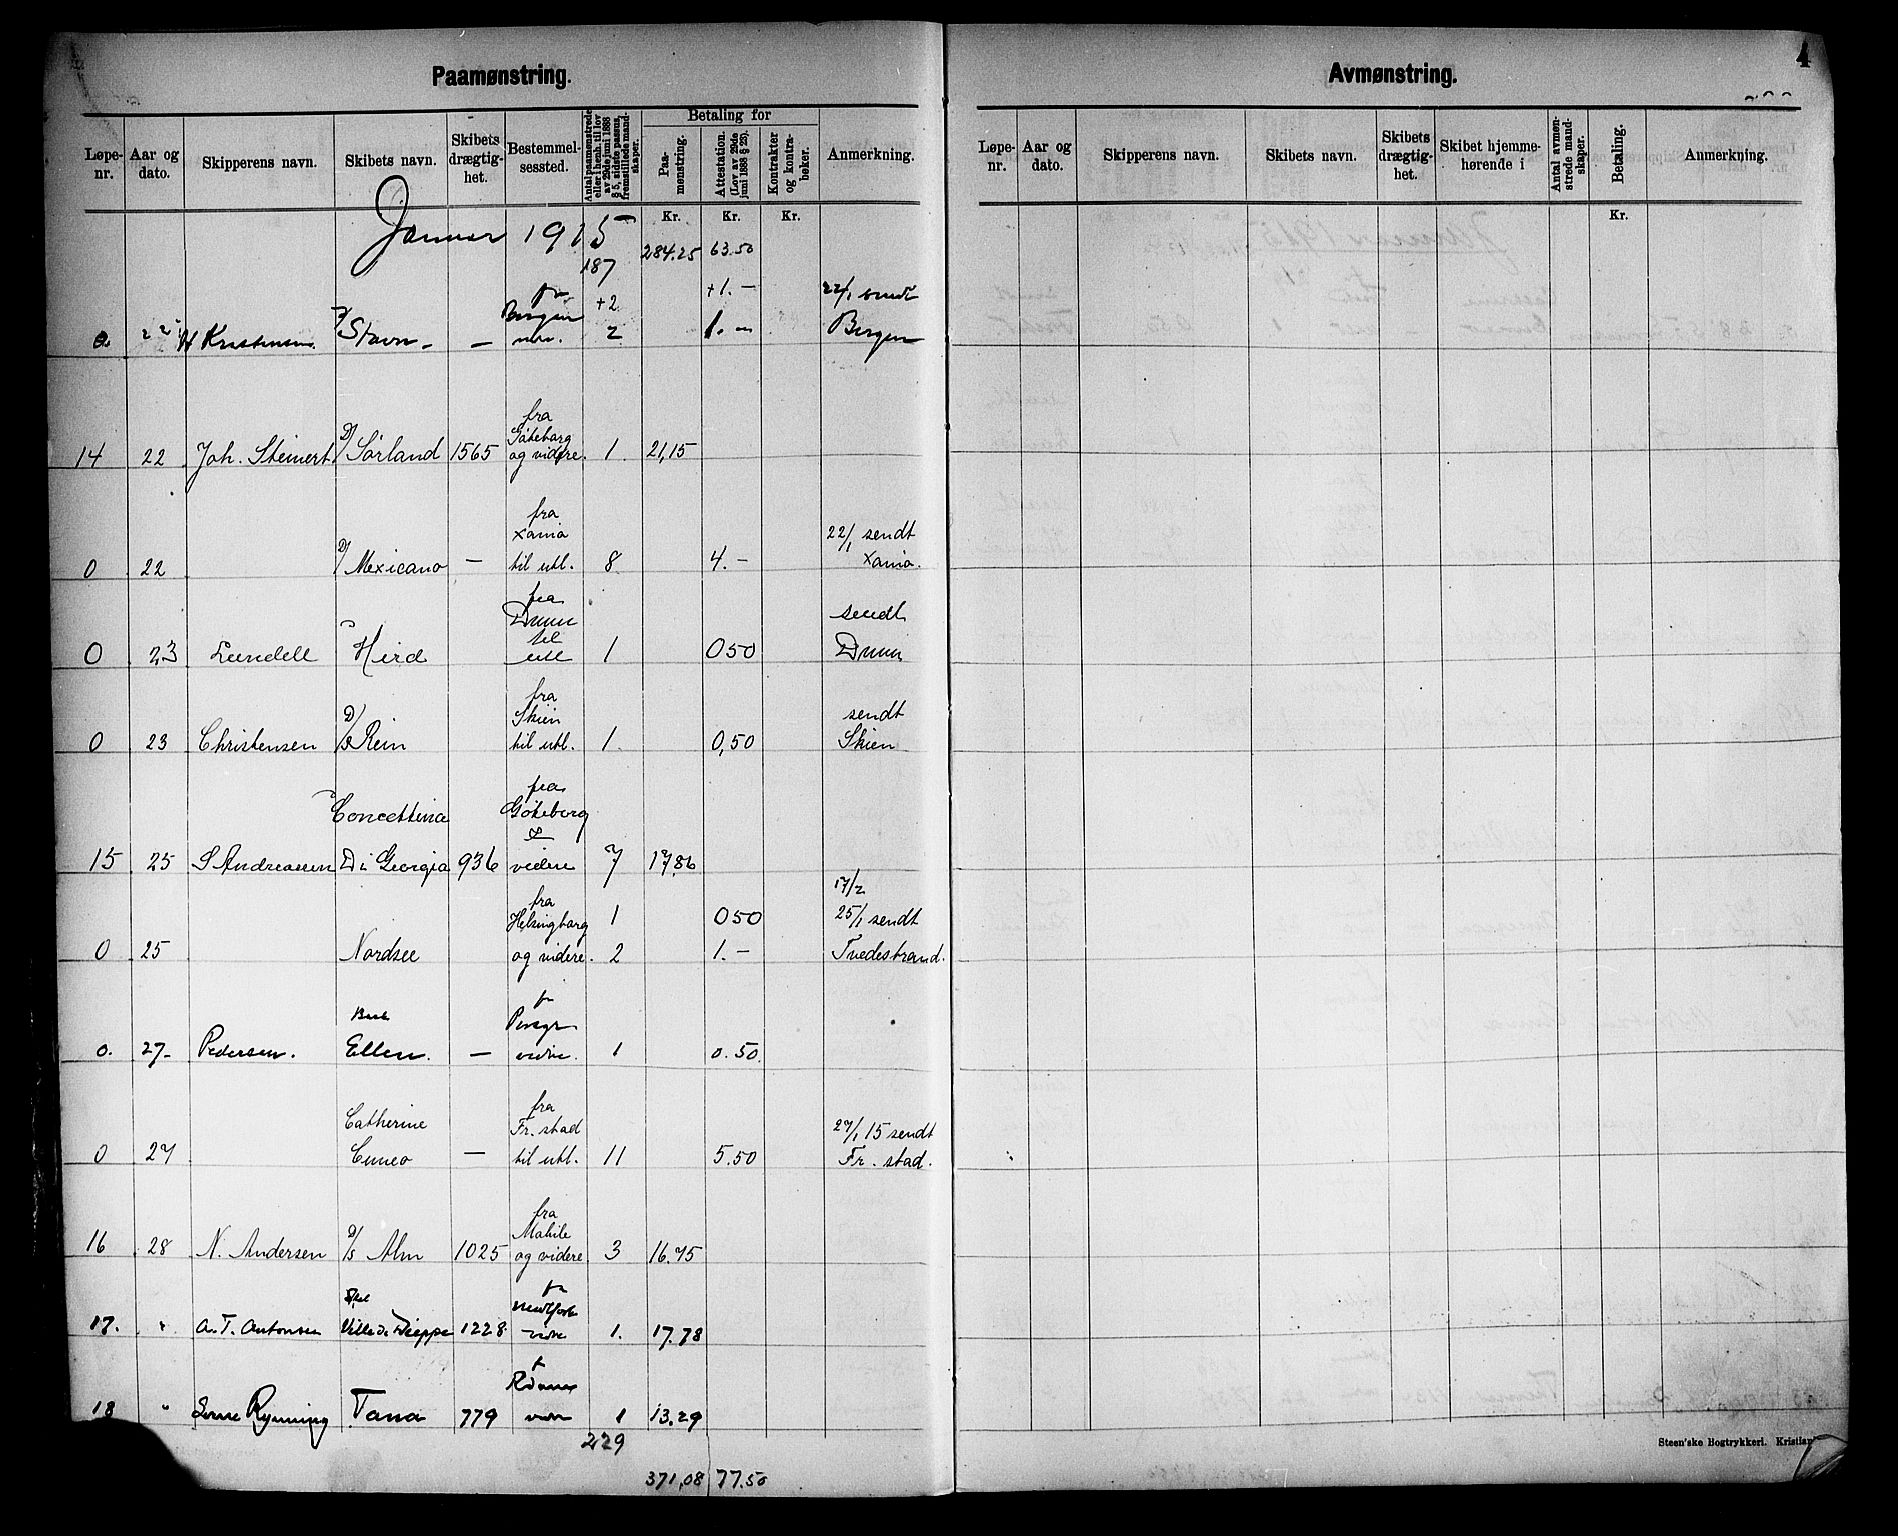 4
Paamønstring.
Løpe-nr. Aar og dato. Skipperens navn. Skibets navn. Skibets drægtig-het. Bestemmel-sessted. Antal paamønstrede eller i henh. til lov av 29de juni 1888 § 5, sidste passus, fremstillede mand-skaper. Betaling for Paa-mønstring. Attestation. (Lov av 29de juni 1888 § 23). Kontrakter og kontra-bøker. Anmerkning.
Kr. Kr. Kr.
Januar 1915
187 284.25 63.50
fra +2 +1.— 22/1 sendt
0. 22 H Kristensen D/ Stavn — Bergen 2 1.— Bergen
fra
Göteborg
14 22 Joh. Steinert D/ Sörland 1565 og videre. 1 21,15
fra
Xania 22/1 sendt
0 22 D/ Mexicano — til utl. 8 4.— Xania.
fra
Drmn sendt
til
0 23 Lundell Hird utl 1 050 Drmn
fra
Skien sendt
0 23 Christensen D/S Rein til utl. 1. 0,50 Skien
fra
Concettina Göteborg
&
15 25 S Andreassen Di Georgia 936 videre 7 17,86
17/2
fra
Helsingborg 1 050 25/1 sendt
0 25 Nordsee og videre. 2 1.— Tvedestrand.
fr
Bark Porsgr
0. 27- Pedersen. Ellen. — vidre. 1 0.50.
fra
Catherine Fr. stad 27/1 15 sendt
0 27 Cuneo — til utl. 11 5.50 Fr. stad.
fra
Mobile
16 28 N. Andersen D/S Alm 1025 og videre. 3 16.75
fr
17. " A. T. Antonsen Ville de Dieppe 1228 vidre 1. 17.78
fr
18 " Rynning Tana 779 vidre 1 13.29
229
371,08 77.50
Avmønstring.
Løpe-nr. Aar og dato. Skipperens navn. Skibets navn. Skibets drægtig-het. Skibet hjemme-hørende i Antal avmøn-strede mand-skaper. Betaling. Anmerkning.
Kr.
Steen'ske Bogtrykkeri. Kristian